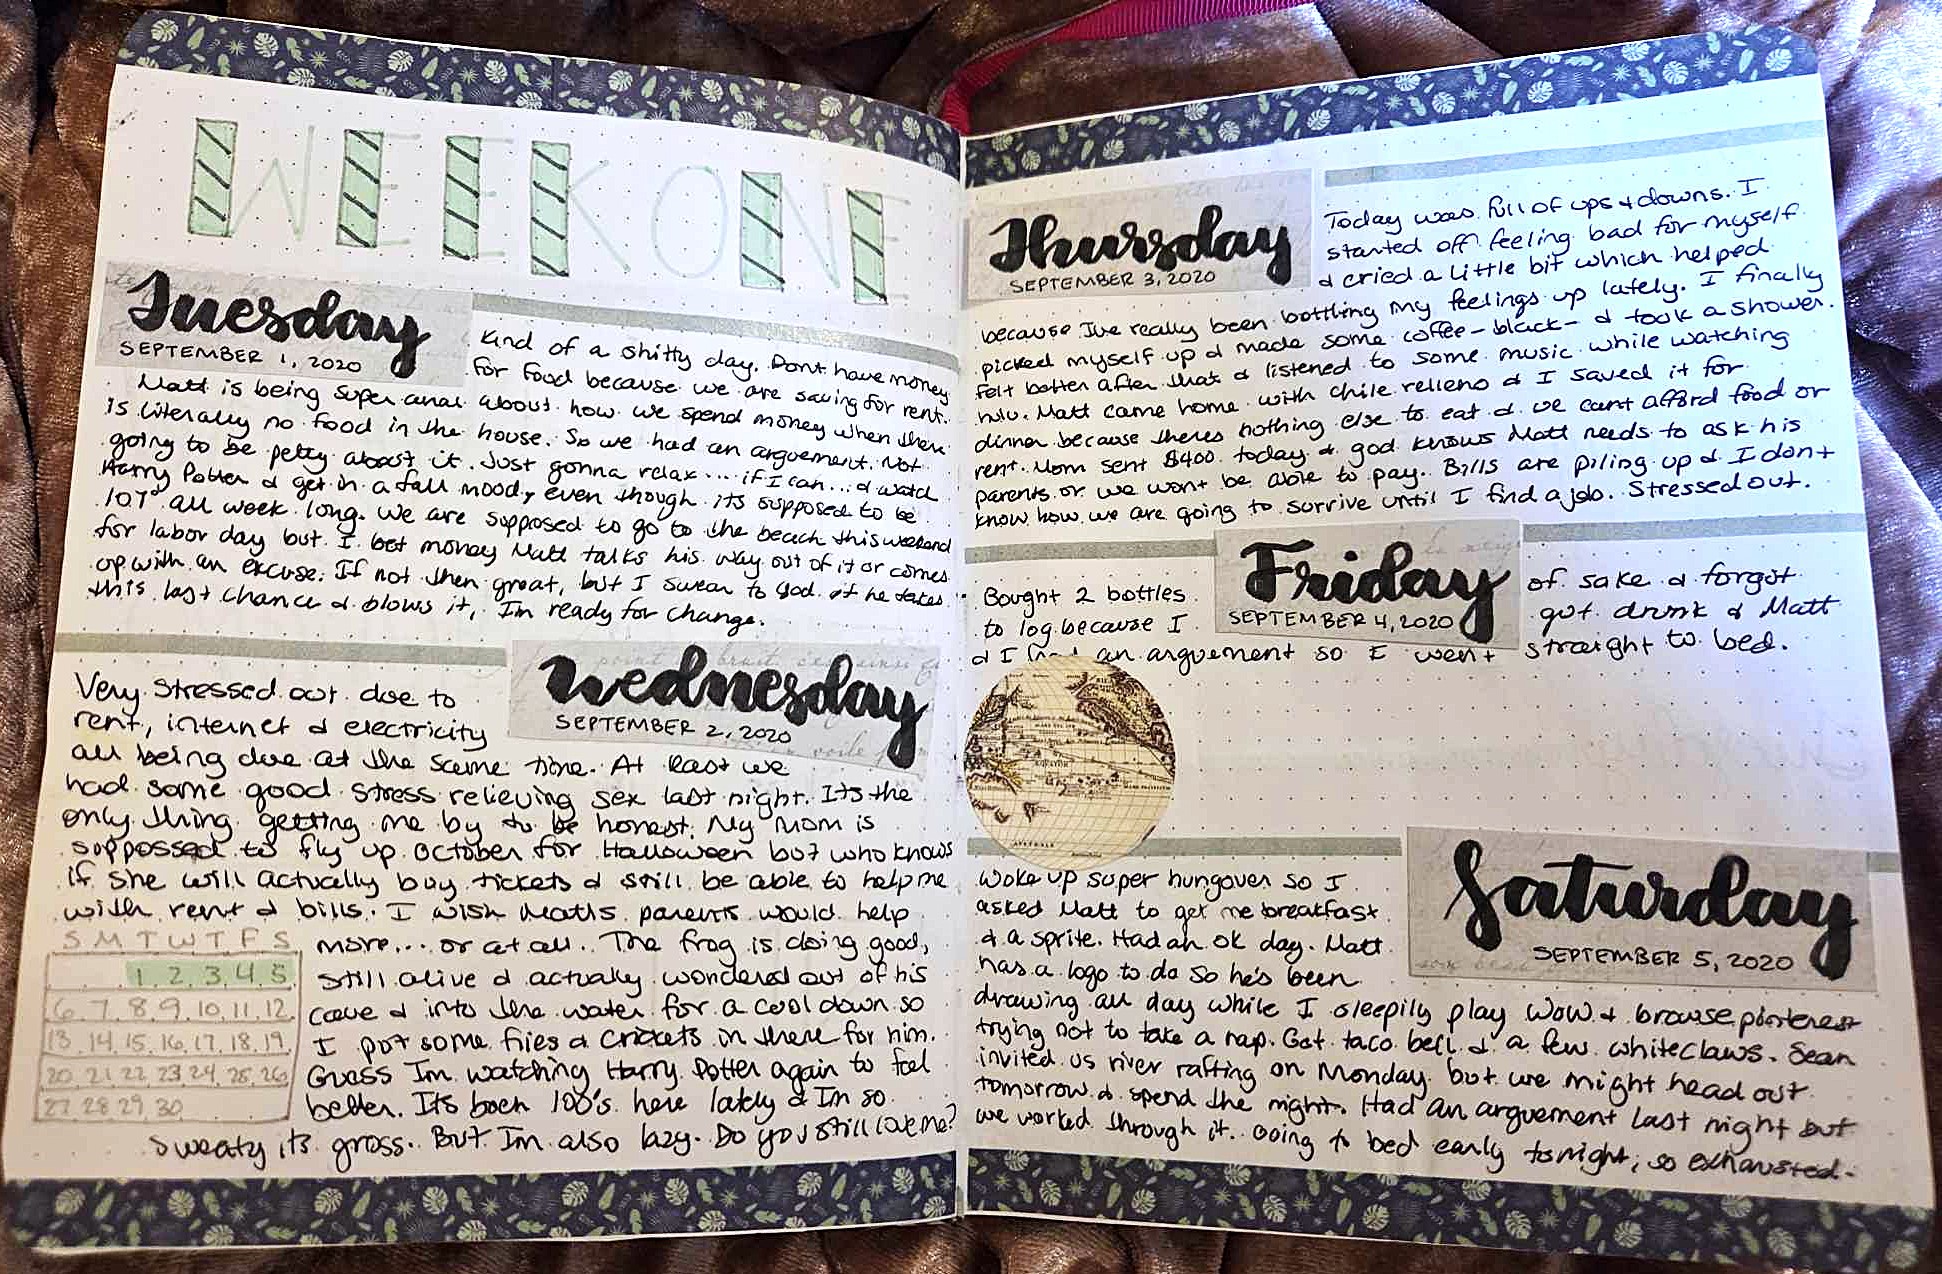 WEEK ONE
Tuesday
SEPTEMBER 1, 2020
Kind of a shitty day. Dont have money
for food because we are saving for rent.
Matt is being super anal about how we spend money when there
is literally no food in the house. So we had an arguement. Not
going to be petty about it. Just gonna relax... if I can... & watch
Harry Potter & get in a fall mood, even though its supposed to be
107° all week long. We are supposed to go to the beach this weekend
for labor day but I bet money Matt talks his way out of it or comes
up with an excuse. If not then great, but I swear to God if he takes
this last chance & blows it, Im ready for change.
Wednesday
SEPTEMBER 2, 2020
Very stressed out due to
rent, internet & electricity
all being due at the same time. At least we
had some good stress relieving sex last night. Its the
only thing getting me by to be honest. My mom is
suppossed to fly up October for Halloween but who knows
if she will actually buy tickets & still be able to help me
with rent & bills. I wish Matts parents would help
more... or at all. The frog is doing good,
still alive & actually wondered out of his
cave & into the water for a cool down so
I put some flies & crickets in there for him.
Guess Im watching Harry Potter again to feel
better. Its been 100's here lately & Im so
sweaty its gross. But Im also lazy. Do you still love me?
S M T W T F S
1 2 3 4 5
6 7 8 9 10 11 12
13 14 15 16 17 18 19
20 21 22 23 24 25 26
27 28 29 30
Thursday
SEPTEMBER 3, 2020
Today was full of ups & downs. I
started off feeling bad for myself
& cried a little bit which helped
because Ive really been bottling my feelings up lately. I finally
picked myself up & made some coffee - black - & took a shower.
Felt better after that & listened to some music while watching
hulu. Matt came home with chile relleno & I saved it for
dinner because theres nothing else to eat & we cant afford food or
rent. Mom sent $400 today & god knows Matt needs to ask his
parents or we wont be able to pay. Bills are piling up & I dont
know how we are going to survive until I find a job. Stressed out.
Friday
SEPTEMBER 4, 2020
Bought 2 bottles of sake & forgot
to log because I got drunk & Matt
& I had an arguement so I went straight to bed.
Saturday
SEPTEMBER 5, 2020
Woke up super hungover so I
asked Matt to get me breakfast
& a sprite. Had an ok day. Matt
has a logo to do so he's been
drawing all day while I sleepily play WoW & browse pinterest
trying not to take a nap. Got taco bell & a few whiteclaws. Sean
invited us river rafting on Monday but we might head out
tomorrow & spend the night. Had an arguement last night but
we worked through it. Going to bed early tonight, so exhausted.